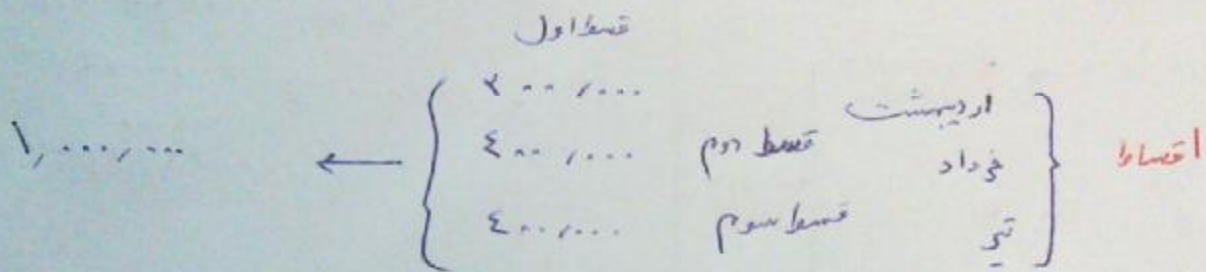 قسط اول
اقساط
اردیبهشت ۲۰۰,۰۰۰
خرداد قسط دوم ۴۰۰,۰۰۰
تیر قسط سوم ۴۰۰,۰۰۰
← ۱,۰۰۰,۰۰۰